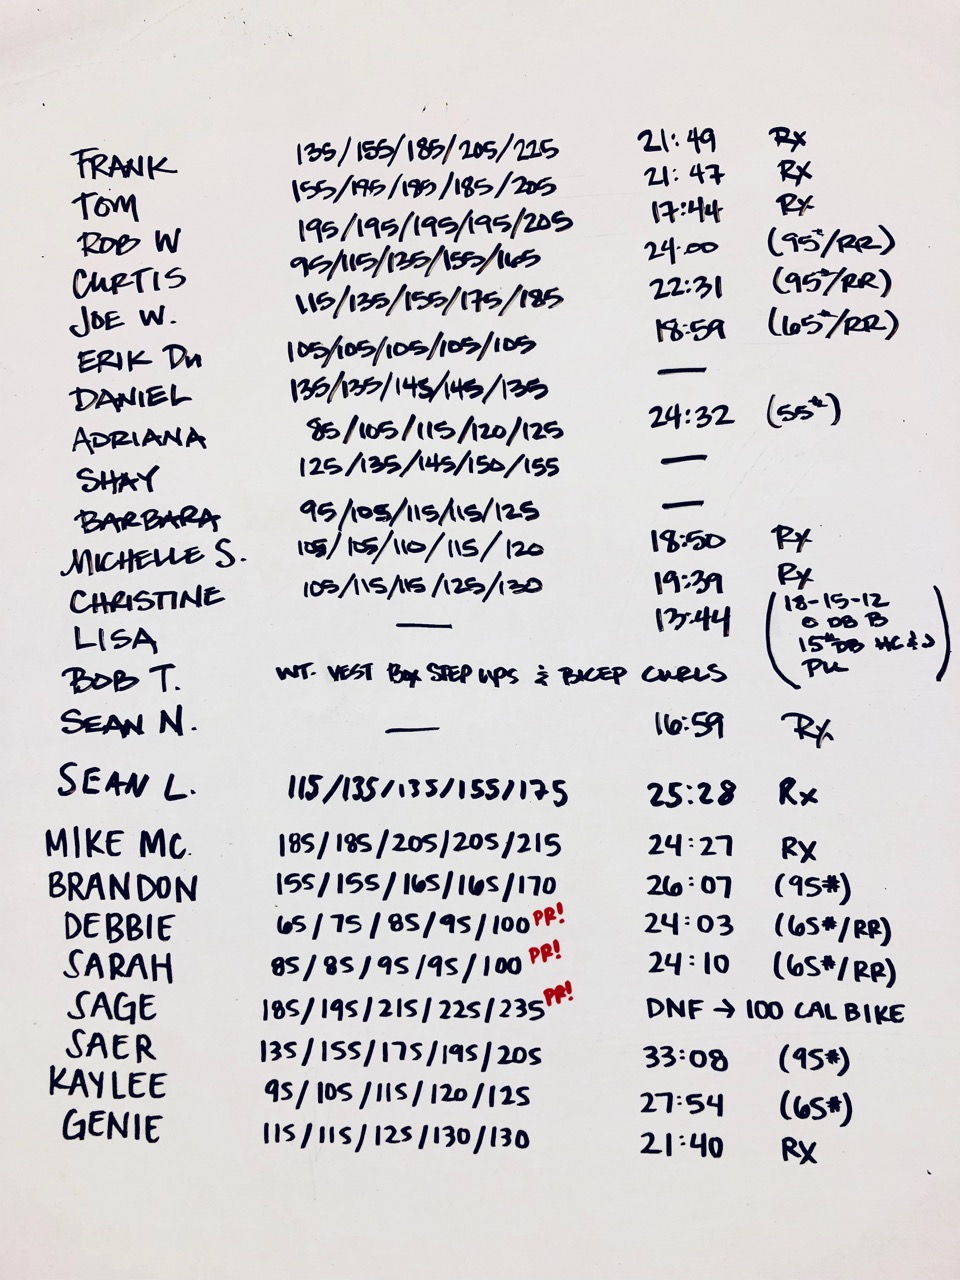 FRANK 135/155/185/205/225 21:49 Rx
TOM 155/195/195/185/205 21:47 Rx
ROB W 195/195/195/195/205 17:44 Rx
CURTIS 95/115/135/155/165 24:00 (95#/RR)
JOE W. 115/135/155/175/185 22:31 (95#/RR)
ERIK Du 105/105/105/105/105 18:59 (65#/RR)
DANIEL 135/135/145/145/135 —
ADRIANA 85/105/115/120/125 24:32 (55#)
SHAY 125/135/145/150/155 —
BARBARA 95/105/115/115/125 —
MICHELLE S. 105/105/110/115/120 18:50 Rx
CHRISTINE 105/115/115/125/130 19:39 Rx
LISA — 13:44 (18-15-12
DB B
15#DB HC&J
PU)
BOB T. WT. VEST BOX STEP UPS & BICEP CURLS
SEAN N. — 16:59 Rx
SEAN L. 115/135/135/155/175 25:28 Rx
MIKE MC. 185/185/205/205/215 24:27 Rx
BRANDON 155/155/165/165/170 26:07 (95#)
DEBBIE 65/75/85/95/100 PR! 24:03 (65#/RR)
SARAH 85/85/95/95/100 PR! 24:10 (65#/RR)
SAGE 185/195/215/225/235 PR! DNF → 100 CAL BIKE
SAER 135/155/175/195/205 33:08 (95#)
KAYLEE 95/105/115/120/125 27:54 (65#)
GENIE 115/115/125/130/130 21:40 Rx